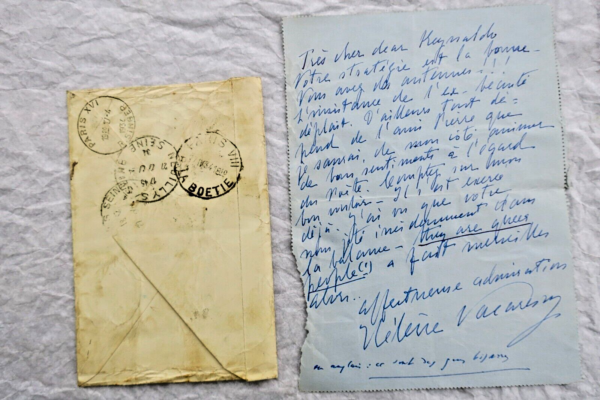 PARIS XVI
NEUILLY S SEINE
PARIS VIII
BOETIE
Très cher dear Reynaldo
Votre stratégie est la bonne.
Vous avez des antennes !!!
L'insistance de l'ex-beauté
déplait. D'ailleurs tout dé-
pend de l'ami Pierre que
je saurai, de mon côté, animer
de bons sentiments à l'égard
du poète. Comptez sur mon
bon vouloir. Il s'est exercé
déjà. J'ai vu que votre
nom, jeté incidemment dans
la balance - they are queer
people (!) a fait merveilles
alors..
affectueuse admiration
Hélène Vacaresco
en anglais : ce sont des gens